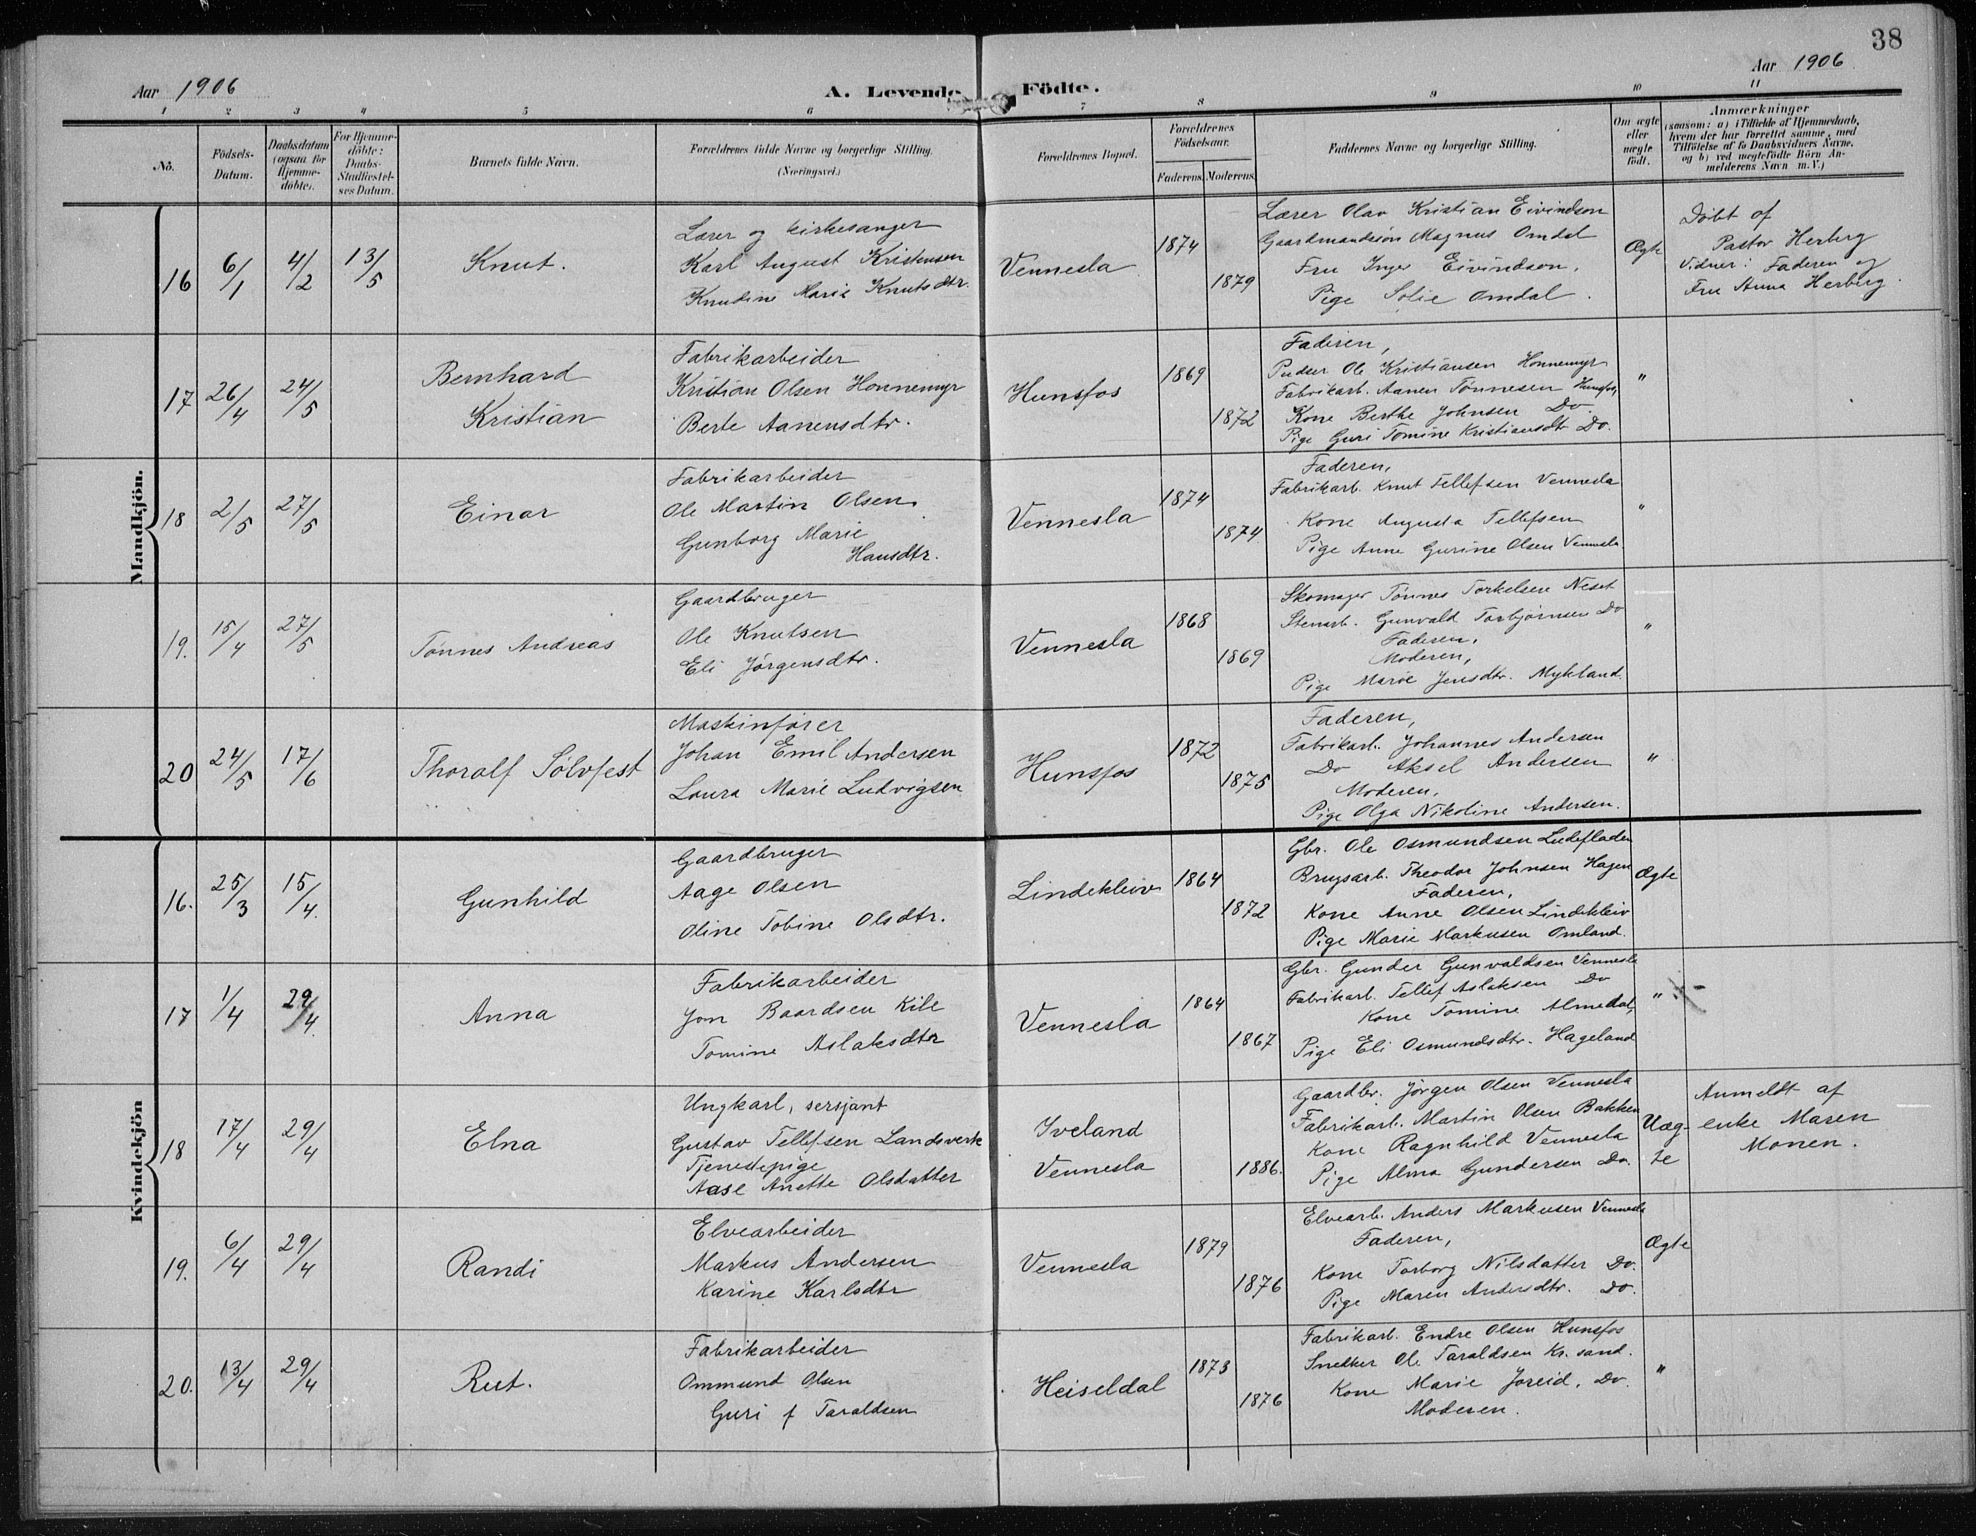 38
Aar 1906
A. Levende Födte.
Aar 1906
1 2 3 4 5 6 7 8 9 10 11
No.
Födsels-
Datum.
Daabsdatum
(ogsaa for
Hjemme-
döbte).
For Hjemme-
döbte:
Daabs-
Stadfæstel-
ses Datum.
Barnets fulde Navn.
Forældrenes fulde Navne og borgerlige Stilling.
(Næringsvei.)
Forældrenes Bopæl.
Forældrenes
Födselsaar.
Faderens.
Moderens.
Faddernes Navne og borgerlige Stilling.
Om ægte
eller
uægte
født.
Anmærkninger
(saasom: a) i Tilfælde af Hjemmedaab,
hvem der har forrettet samme, med
Tilföielse af to Daabsvidners Navne,
og b) ved uegtefödte Börn An-
melderens Navn m. V.)
Mandkjön.
16
6/1
4/2
13/5
Knut.
Lærer og kirkesanger
Karl August Kristensen
Knudine Marie Knutsdtr.
Vennesla
1874
1879
Lærer Olav Kristian Eivindson
Gaardmandssøn Magnus Omdal
Fru Inger Eivindson.
Pige Sofie Omdal.
Ægte
Døbt af
Pastor Herberg
Vidner: Faderen og
Fru Anna Herberg.
17
26/4
24/5
Bernhard
Kristian
Fabrikarbeider
Kristian Olsen Honnemyr
Berte Aanensdtr.
Hunsfos
1869
1872
Faderen,
Ole Kristiansen Honnemyr
Fabrikarb. Aanen Tønnesen Hunsfos,
Kone Berthe Johnsen Do.
Pige Guri Tomine Kristiansdtr Do.
"
18
2/5
27/5
Einar
Fabrikarbeider
Ole Martin Olsen
Gunborg Marie
Hansdtr.
Vennesla
1874
1874
Faderen,
Fabrikarb. Knut Tellefsen Vennesla
Kone Augusta Tellefsen
Pige Anne Gurine Olsen Vennesla
"
19.
15/4
27/5
Tønnes Andreas
Gaardbruger
Ole Knutsen
Eli Jørgensdtr.
Vennesla
1868
1869
Skomager Tønnes Torkelsen Neset
Stenarb. Gunvald Torbjørnsen Do
Faderen,
Moderen,
Pige Marie Jensdtr. Mykland.
"
20
24/5
17/6
Thoralf Sølvfest
Maskinfører
Johan Emil Andersen
Laura Marie Ludvigsen
Hunsfos
1872
1875
Faderen,
Fabrikarb. Johannes Andersen
Do Aksel Andersen
Moderen,
Pige Olga Nikoline Andersen.
"
Kvindekjön
16.
25/3
15/4.
Gunhild
Gaardbruger
Aage Olsen
Oline Tobine Olsdtr.
Lindekleiv
1864
1872
Gbr. Ole Osmundsen Ludefladen
Brugsarb. Theodor Johnsen Hagen
Faderen,
Kone Anne Olsen Lindekleiv
Pige Marie Markusen Omland.
Ægte
17
1/4
29/4.
Anna
Fabrikarbeider
Jon Baardsen Kile
Tomine Aslaksdtr
Vennesla
1864
1867
Gbr. Gunder Gunvaldsen Vennesla
Fabrikarb. Tellef Aslaksen Do
Kone Tomine Almedal,
Pige Eli Osmundsdtr. Hageland
"
18
17/4
29/4
Elna
Ungkarl, sersjant
Gustav Tellefsen Landsverk
Tjenestepige
Aase Anette Olsdatter
Iveland
Vennesla
1886.
Gaardbr. Jørgen Olsen Vennesla
Fabrikarb. Martin Olsen Bakken
Kone Ragnhild Vennesla
Pige Alma Gundersen Do.
Uæg-
te
Anmeldt af
enke Maren
Monen.
19.
6/4
29/4
Randi
Elvearbeider
Markus Andersen
Karine Karlsdtr
Vennesla
1879
1876
Elvearb. Anders Markusen Vennesla
Faderen,
Kone Torborg Nilsdatter Do.
Pige Maren Andersdtr. Do.
Ægte
20.
13/4
29/4
Rut.
Fabrikarbeider
Ommund Olsen
Guri f Taraldsen
Heiseldal
1873
1876
Fabrikarb. Endre Olsen Hunsfos
Snedker Ole Taraldsen Kr. sand.
Kone Marie Joreid, Do.
Moderen.
"